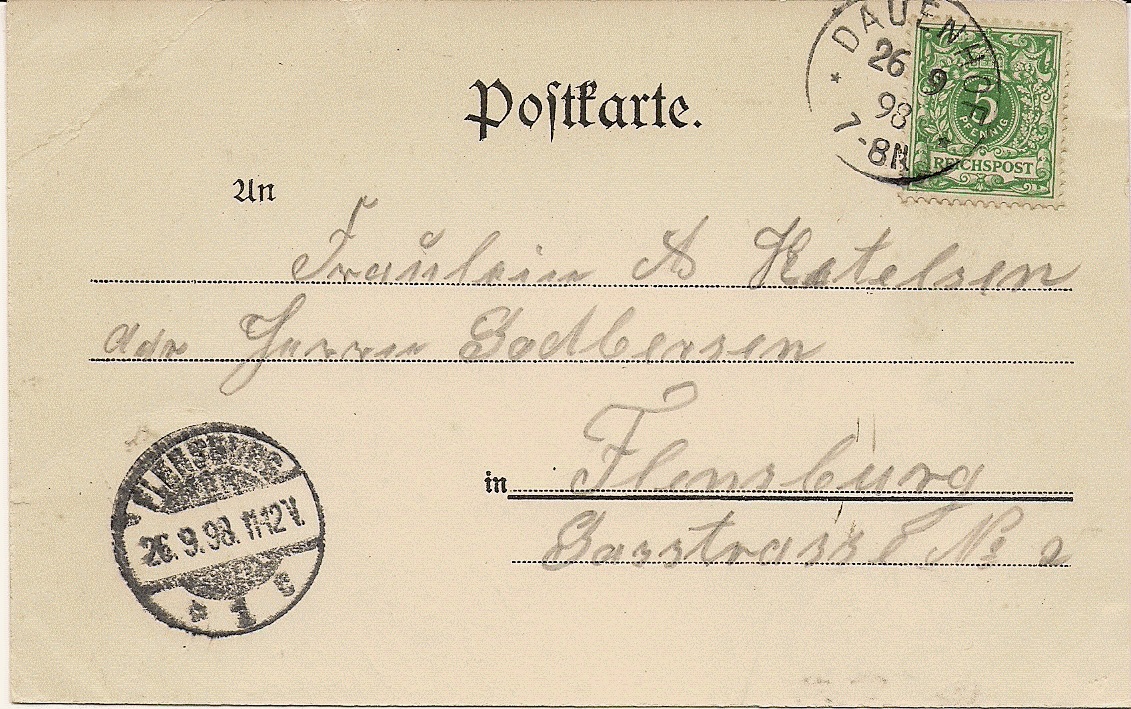 Postkarte.
DAUENHOF
26 9
98
7-8N
5
PFENNIG
REICHSPOST
An
Fräulein A Ketelsen
adr Herrn Godbersen
in Flensburg
Gasstrasse No 2
FLENSBURG
26.9.98. 11-12V.
1